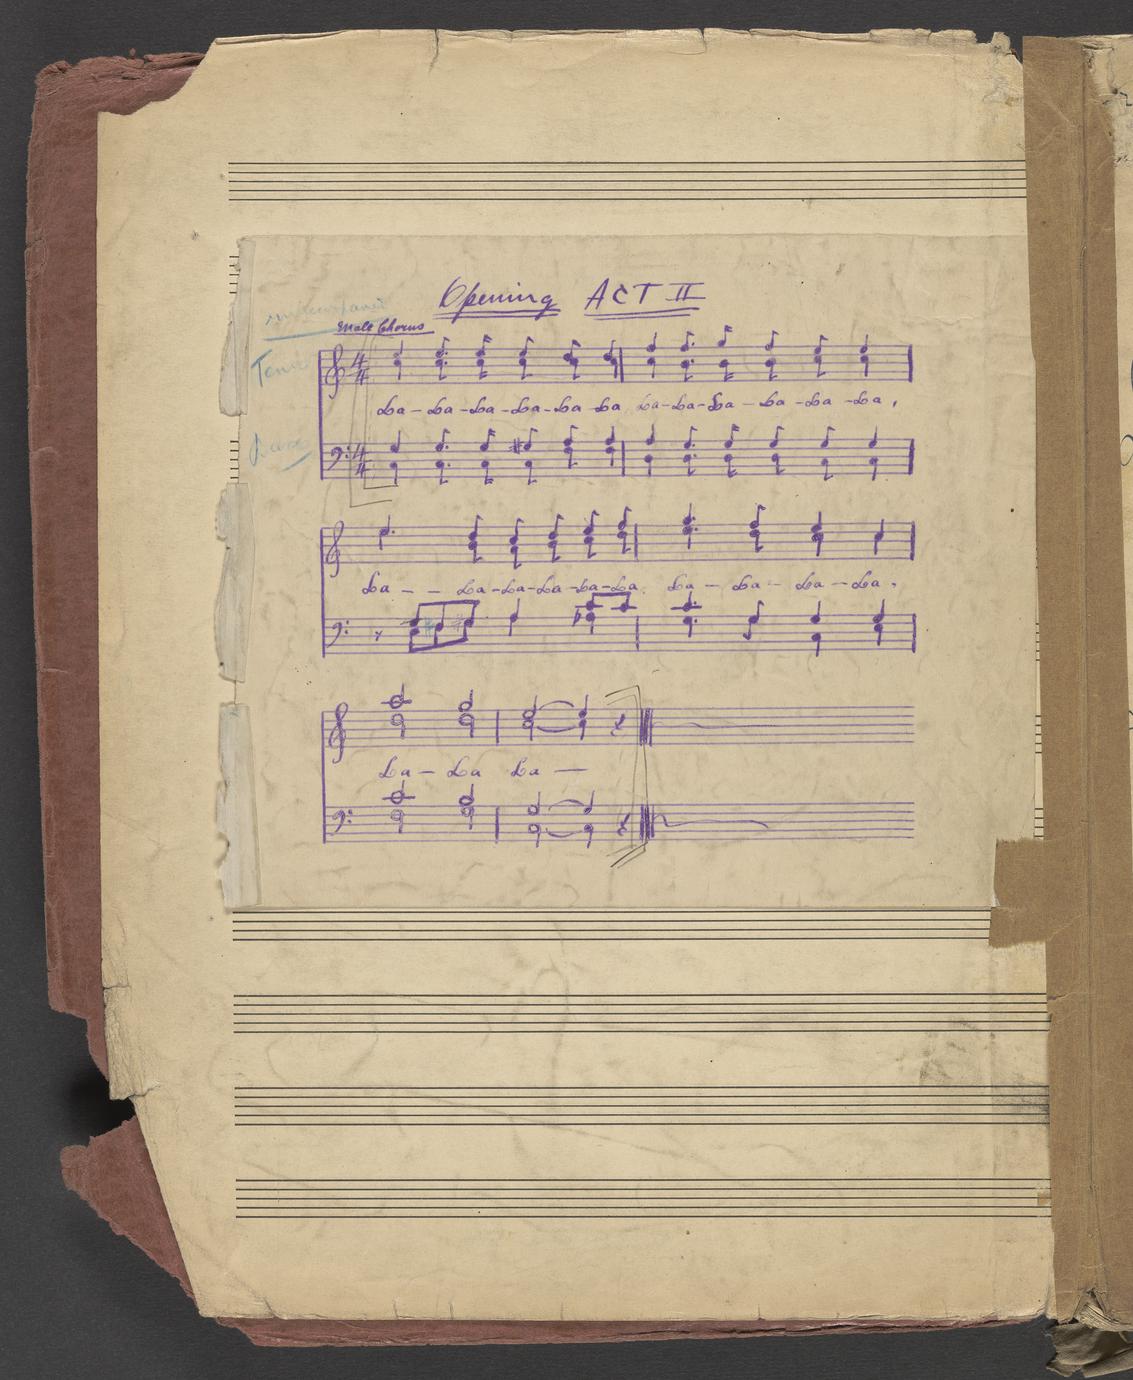 Opening ACT II
Male Chorus
La - La - La - La - La - La La - La - La - La - La - La,
La - - La - La - La - La - La. La - La - La - La.
La - La La -